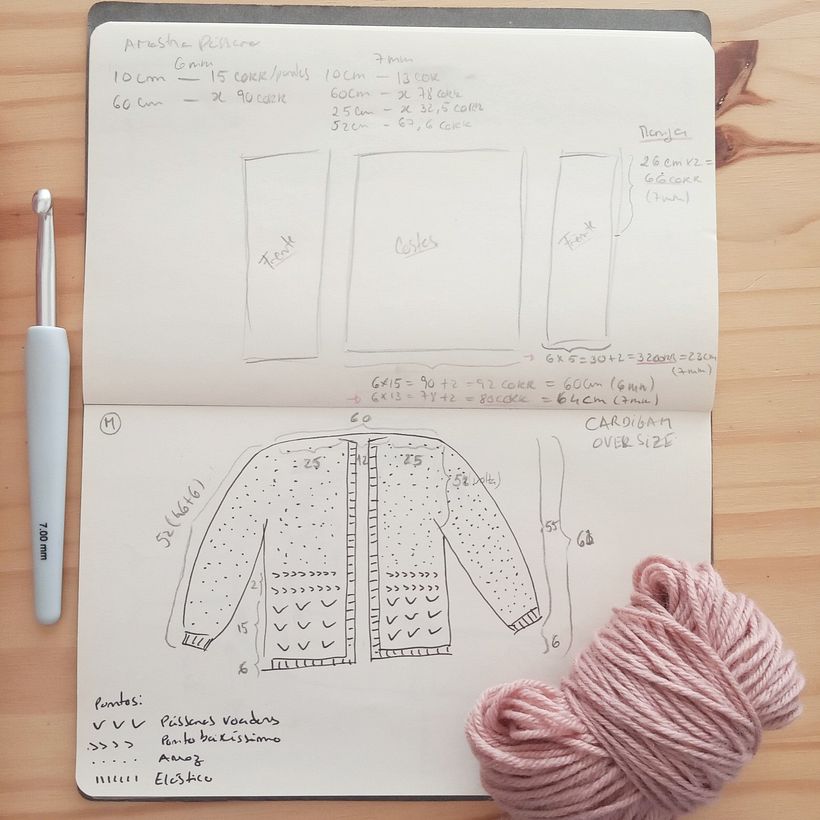 Amostra Pássaro
6mm
10cm — 15 corr/pontos
60cm — x 90 corr
7mm
10cm — 13 cor
60cm — x 78 corr
25cm — x 32,5 corr
52cm — 67,6 corr
Manga
26cm x2 =
66 corr
(7mm)
Frente
Costas
Frente
6x5=30+2=32corr=23cm
(7mm)
6x15 = 90 +2 = 92 corr = 60cm (6mm)
→ 6x13 = 78 +2 = 80corr = 64cm (7mm)
M
CARDIGAM
OVERSIZE
60
25
12
25
52 (46+6)
52
55
2
15
6
6
Pontos:
Pássaros voadores
Ponto baixíssimo
Arroz
Elástico
7.00 mm